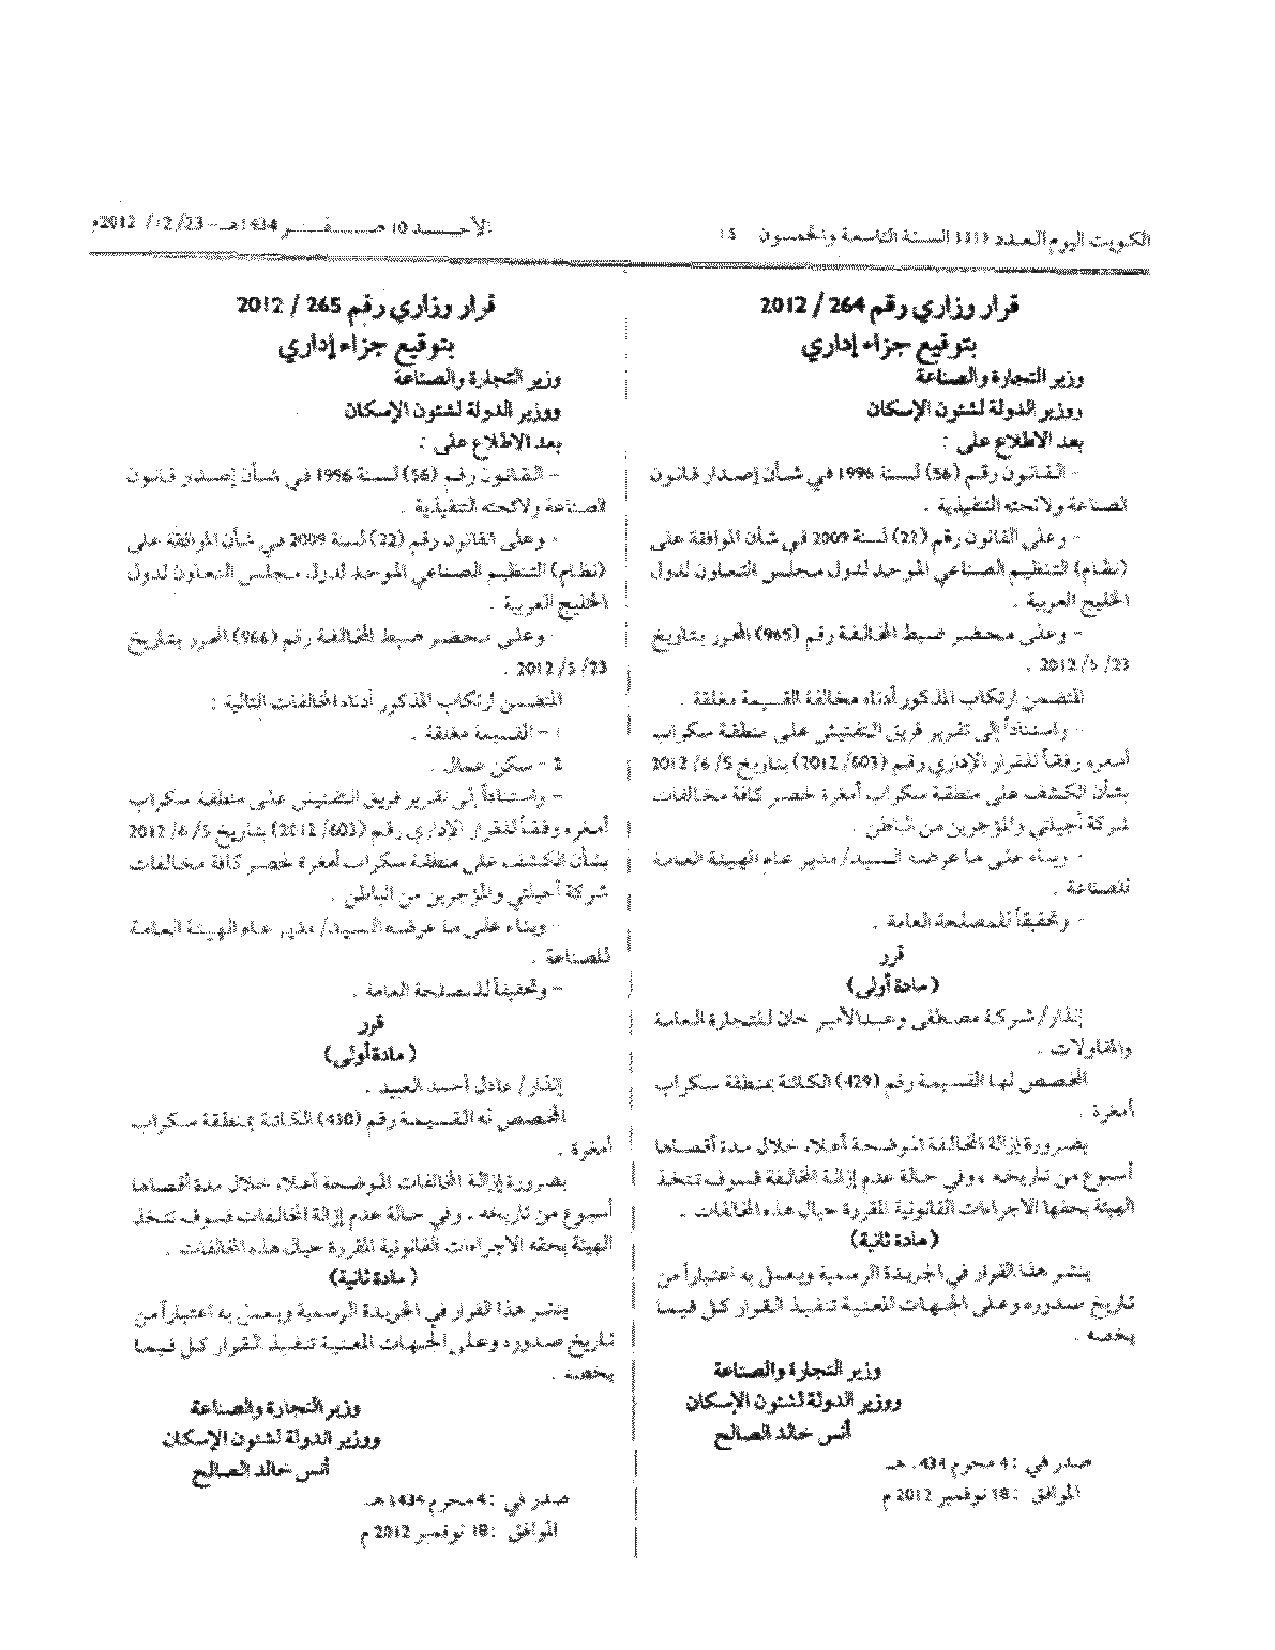 الكويت اليوم العدد 1111 السنة التاسعة والخمسون 15
الأحـــد 10 صـــفـــر 1434هـ - 23/ 12/ 2012م
قرار وزاري رقم 264 / 2012
بتوقيع جزاء إداري
وزير التجارة والصناعة
ووزير الدولة لشئون الإسكان
بعد الاطلاع على :
- القانون رقم (56) لسنة 1996 في شأن إصدار قانون
الصناعة ولائحته التنفيذية .
- وعلى القانون رقم (22) لسنة 2009 في شأن الموافقة على
(نظام) التنظيم الصناعي الموحد لدول مجلس التعاون لدول
الخليج العربية .
- وعلى محضر ضبط المخالفة رقم (965) المحرر بتاريخ
23/ 5/ 2012 .
المتضمن ارتكاب المذكور أدناه مخالفة القسيمة مغلقة .
- واستناداً إلى تقرير فريق التفتيش على منطقة سكراب
أمغره وفقاً للقرار الإداري رقم (603/ 2012) بتاريخ 5/ 6/ 2012
بشأن الكشف على منطقة سكراب أمغرة لحصر كافة مخالفات
شركة أجيلتي والمؤجرين من الباطن .
- وبناء على ما عرضه السيد/ مدير عام الهيئة العامة
للصناعة .
- وتحقيقاً للمصلحة العامة .
قرر
(مادة أولى)
إنذار/ شركة مصطفى وعبدالأمير خان للتجارة العامة
والمقاولات .
المخصص لها القسيمة رقم (429) الكائنة بمنطقة سكراب
أمغرة .
بضرورة إزالة المخالفة الموضحة أعلاه خلال مدة أقصاها
أسبوع من تاريخه ، وفي حالة عدم إزالة المخالفة فسوف تتخذ
الهيئة بحقها الاجراءات القانونية المقررة حيال هذه المخالفات .
(مادة ثانية)
ينشر هذا القرار في الجريدة الرسمية ويعمل به اعتباراً من
تاريخ صدوره وعلى الجهات المعنية تنفيذ القرار كل فيما
يخصه .
وزير التجارة والصناعة
ووزير الدولة لشئون الإسكان
أنس خالد الصالح
صدر في : 4 محرم 1434 هـ
الموافق : 18 نوفمبر 2012 م
قرار وزاري رقم 265 / 2012
بتوقيع جزاء إداري
وزير التجارة والصناعة
ووزير الدولة لشئون الإسكان
بعد الاطلاع على :
- القانون رقم (56) لسنة 1996 في شأن إصدار قانون
الصناعة ولائحته التنفيذية .
- وعلى القانون رقم (22) لسنة 2009 في شأن الموافقة على
(نظام) التنظيم الصناعي الموحد لدول مجلس التعاون لدول
الخليج العربية .
- وعلى محضر ضبط المخالفة رقم (966) المحرر بتاريخ
23/ 5/ 2012 .
المتضمن ارتكاب المذكور أدناه المخالفات التالية :
1 - القسيمة مغلقة .
2 - سكن عمال .
- واستناداً إلى تقرير فريق التفتيش على منطقة سكراب
أمغره وفقاً للقرار الإداري رقم (603/ 2012) بتاريخ 5/ 6/ 2012
بشأن الكشف على منطقة سكراب أمغرة لحصر كافة مخالفات
شركة أجيلتي والمؤجرين من الباطن .
- وبناء على ما عرضه السيد/ مدير عام الهيئة العامة
للصناعة .
- وتحقيقاً للمصلحة العامة .
قرر
(مادة أولى)
إنذار/ عادل أحمد العبيد .
المخصص له القسيمة رقم (430) الكائنة بمنطقة سكراب
أمغرة .
بضرورة إزالة المخالفات الموضحة أعلاه خلال مدة أقصاها
أسبوع من تاريخه ، وفي حالة عدم إزالة المخالفات فسوف تتخذ
الهيئة بحقه الاجراءات القانونية المقررة حيال هذه المخالفات .
(مادة ثانية)
ينشر هذا القرار في الجريدة الرسمية ويعمل به اعتباراً من
تاريخ صدوره وعلى الجهات المعنية تنفيذ القرار كل فيما
يخصه .
وزير التجارة والصناعة
ووزير الدولة لشئون الإسكان
أنس خالد الصالح
صدر في : 4 محرم 1434 هـ
الموافق : 18 نوفمبر 2012 م